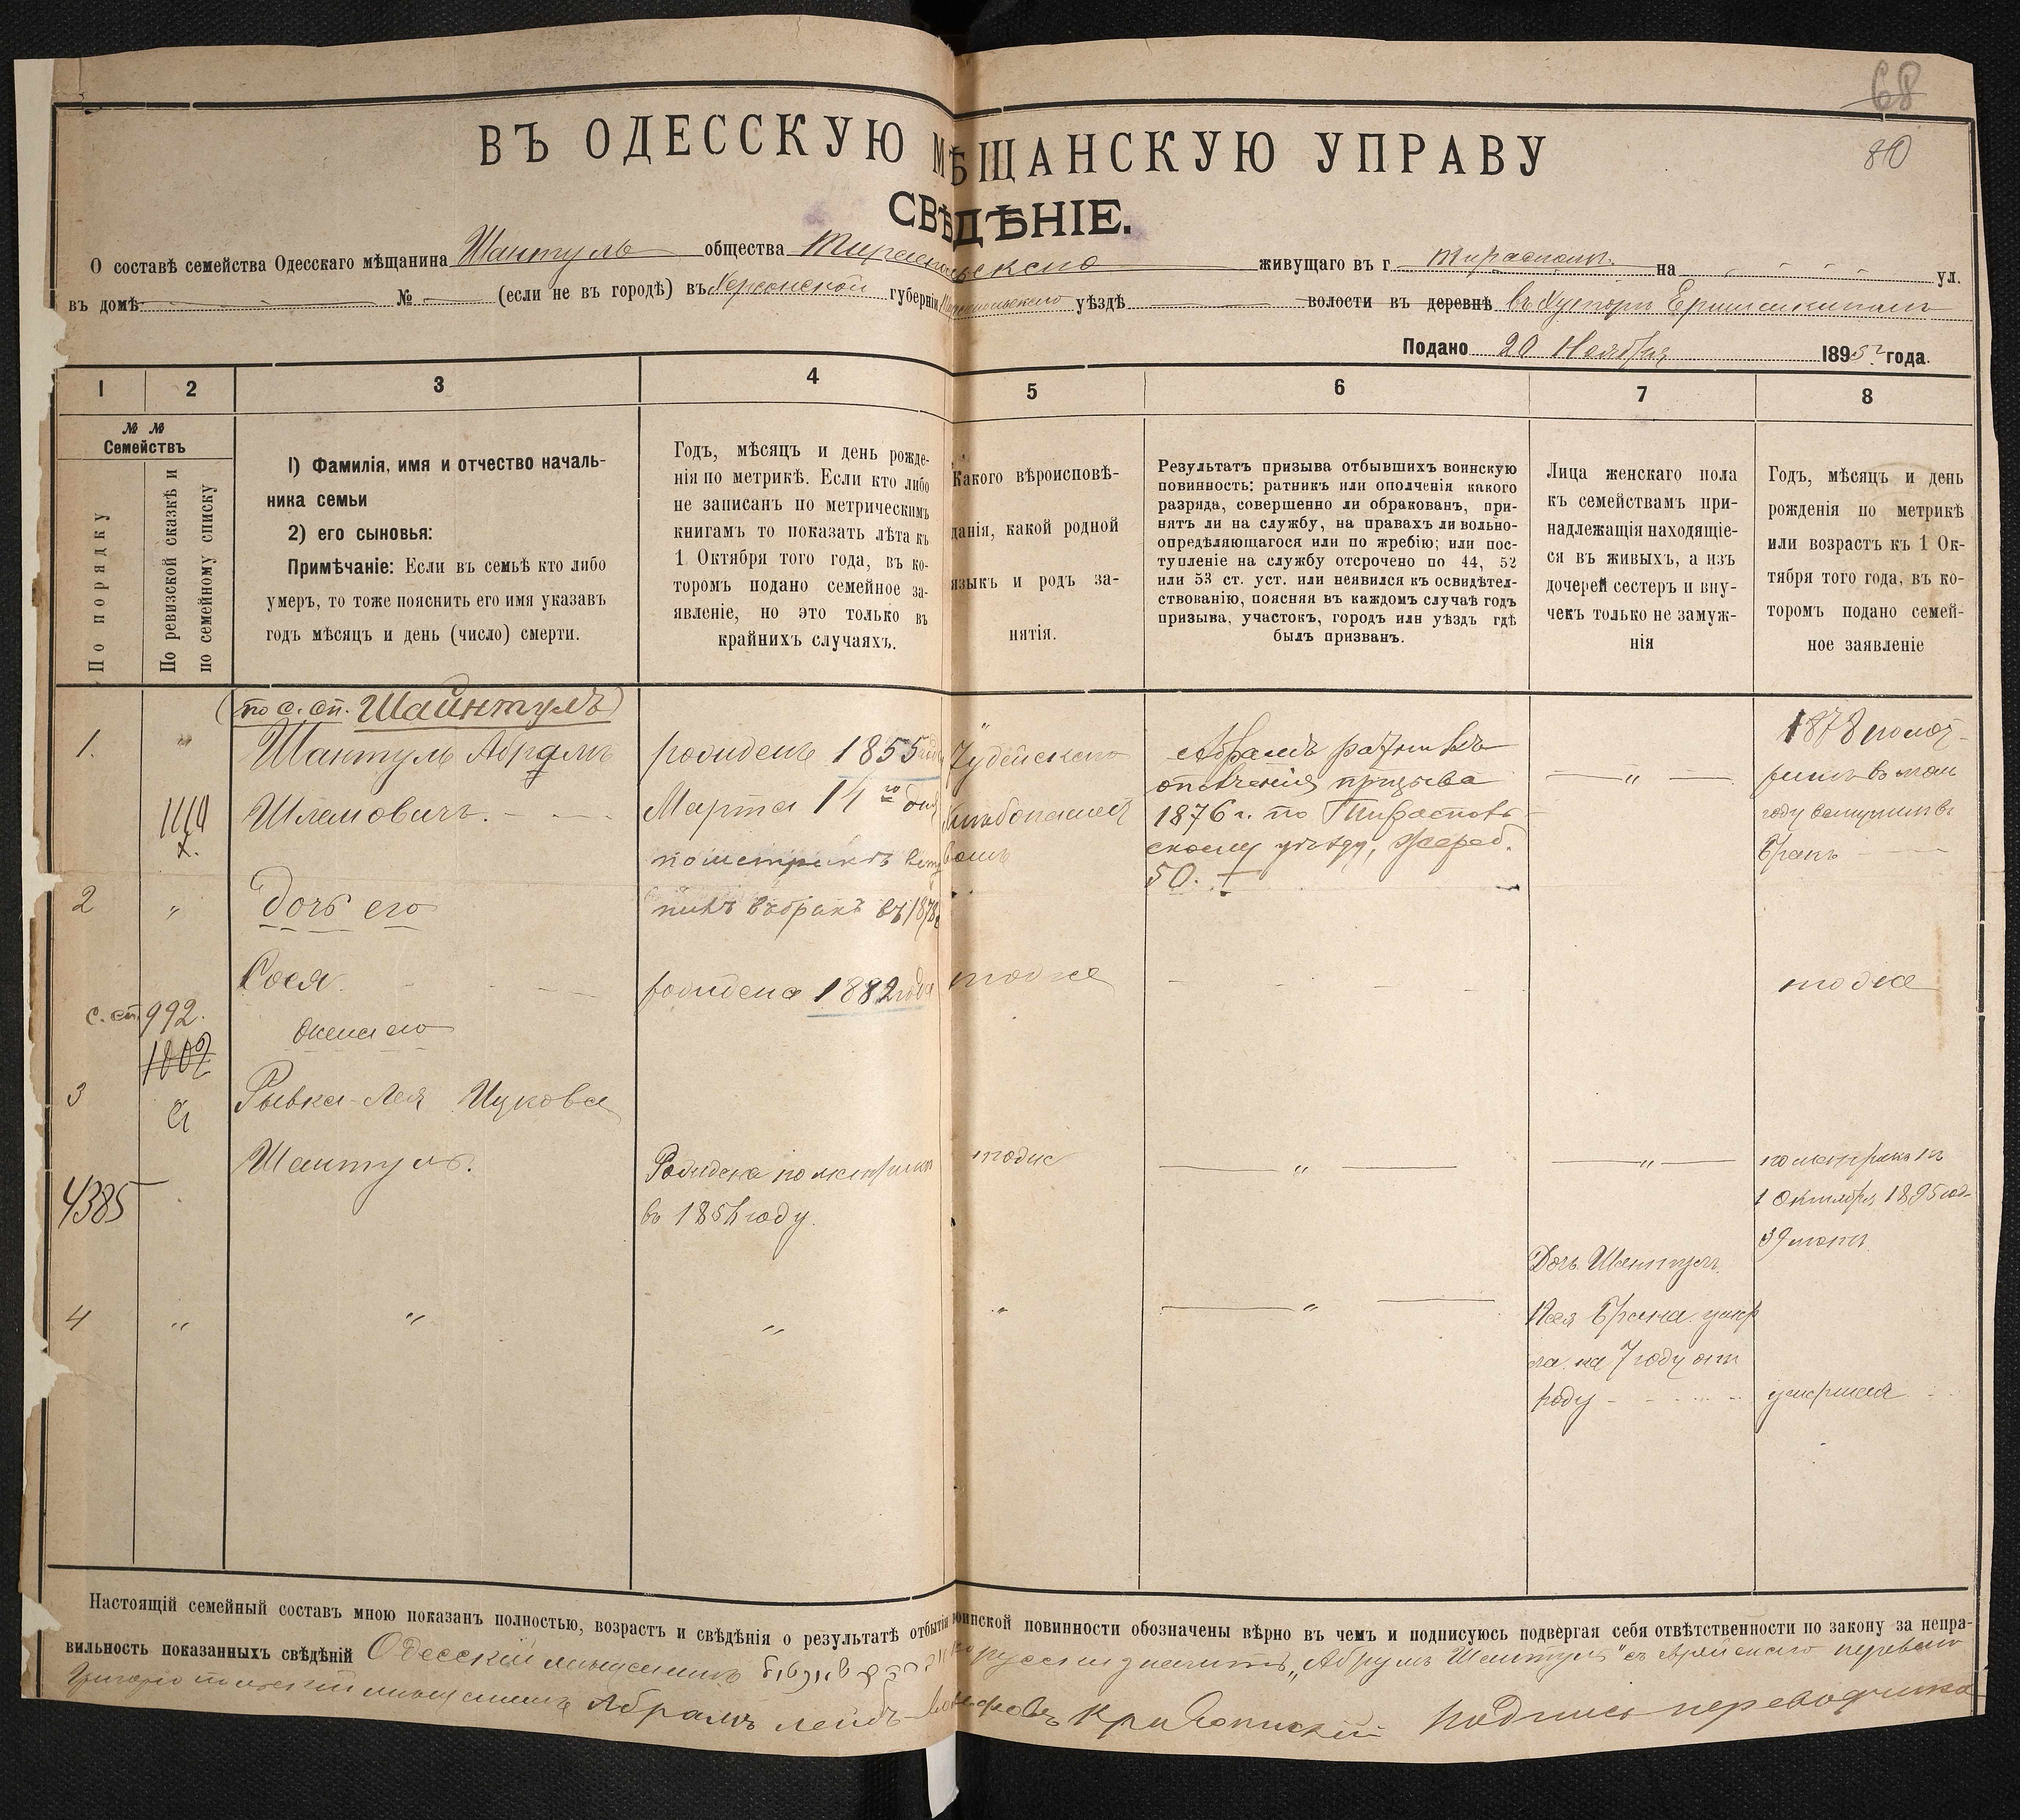 68
80
ВЪ ОДЕССКУЮ МѢЩАНСКУЮ УПРАВУ
СВѢДѢНІЕ.
О составѣ семейства Одесскаго мѣщанина Шантуль общества Тираспольскаго живущаго въ г. Тирасполѣ на ул.
въ домѣ № (если не въ городѣ) въ Херсонской губерніи Тираспольскаго уѣздѣ волости въ деревнѣ въ Хуторѣ
Подано 20 Ноября 1895 года.
1 2 3 4 5 6 7 8
№ № Семействъ
По порядку
По ревизской сказкѣ и по семейному списку
1) Фамилія, имя и отчество началь-
ника семьи
2) его сыновья:
Примѣчаніе: Если въ семьѣ кто либо
умеръ, то тоже пояснить его имя указавъ
годъ мѣсяцъ и день (число) смерти.
Годъ, мѣсяцъ и день рожде-
нія по метрикѣ. Если кто либо
не записанъ по метрическимъ
книгамъ то показать лѣта къ
1 Октября того года, въ ко-
торомъ подано семейное за-
явленіе, но это только въ
крайнихъ случаяхъ.
Какого вѣроисповѣ-
данія, какой родной
языкъ и родъ за-
нятія.
Результатъ призыва отбывшихъ воинскую
повинность: ратникъ или ополченія какого
разряда, совершенно ли обракованъ, при-
нятъ ли на службу, на правахъ ли вольно-
опредѣляющагося или по жребію; или пос-
тупленіе на службу отсрочено по 44, 52
или 53 ст. уст. или неявился къ освидѣтел-
ствованію, поясняя въ каждомъ случаѣ годъ
призыва, участокъ, городъ или уѣздъ гдѣ
былъ призванъ.
Лица женскаго пола
къ семействамъ при-
надлежащія находящіе-
ся въ живыхъ, а изъ
дочерей сестеръ и вну-
чекъ только не замуж-
нія
Годъ, мѣсяцъ и день
рожденія по метрикѣ
или возрастъ къ 1 Ок-
тября того года, въ ко-
торомъ подано семей-
ное заявленіе
(по с. сп. Шайнтуль)
1. " Шантуль Абрамъ
Шлемовичъ.
1110
рожденъ 1855 года
Марта 14го дня
по метрикѣ всту
пилъ въ бракъ въ 1878
Іудейскаго
Хлебопашест
вомъ
Абрамъ ратникъ
ополченія призыва
1876 г. по Тирасполь-
скому уѣзду, Жереб.
50.
"
1878 по мет-
рикѣ въ томъ
году вступилъ въ
бракъ
2 " Дочь его
Рося
рождена 1882 года
тоже
тоже
с. сп. 992.
1802
а
жена его
3 Рывка-Лея Ицкова
Шантуль.
Рождена по метрики
въ 1856 году.
тоже
"
"
по метрикѣ къ
1 Октября 1895 год
39 летъ
4385
4 " " " " "
Дочь Шантуль
Лея Брана умер
ла на 7 году отъ
роду
умершая
Настоящій семейный составъ мною показанъ полностью, возрастъ и свѣдѣнія о результатѣ отбытія воинской повинности обозначены вѣрно въ чемъ и подписуюсь подвергая себя отвѣтственности по закону за непра-
вильность показанныхъ свѣдѣній Одесскій мѣщанинъ по русски значитъ „Абрумъ Шантуль" съ еврейскаго перевелъ
мѣщанинъ Абрамъ Лейбъ Подпись переводчика